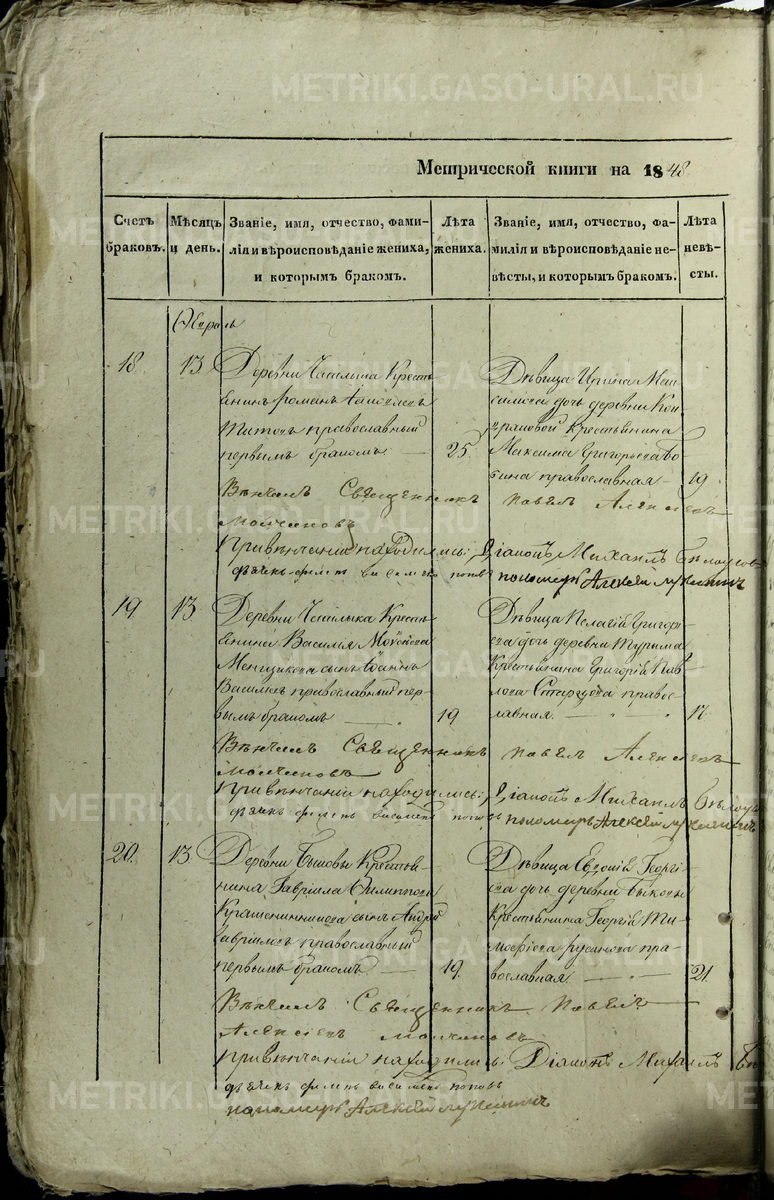 METRIKI.GASO-URAL.RU
Метрической книги на 1848
Счетъ браковъ.
Мѣсяцъ и день.
Званіе, имя, отчество, фами-
лія и вѣроисповѣданіе жениха,
и которымъ бракомъ.
Лѣта жениха.
Званіе, имя, отчество, фа-
милія и вѣроисповѣданіе не-
вѣсты, и которымъ бракомъ.
Лѣта невѣ-
сты.
Февраль
18. 13
Деревни Кресть
янинъ Романъ
Титовъ православный
первымъ бракомъ 25.
Дѣвица Ирина Мак
симова дочь деревни
Крестьянина
Максима Григорьева
православная 19.
Вѣнчалъ Священникъ Павелъ Алексіевъ
Молчановъ
При вѣнчаніи находились: Діаконъ Михаилъ
дьячекъ Филипъ поповъ пономарь Алексѣй
19. 13
Деревни Кресть
янина Василія
Меншикова сынъ Іоаннъ
Васильевъ православный пер
вымъ бракомъ 19.
Дѣвица Пелагія Григорь
ева дочь деревни
Крестьянина Григорія Пав
лова правос-
лавная. 17.
Вѣнчалъ Священникъ Павелъ Алексіевъ
Молчановъ
При вѣнчаніи находились: Діаконъ Михаилъ
дьячекъ Филипъ поповъ пономарь Алексѣй
20. 13
Деревни Быковы Крестья
нина Гавріила Филиппова
Крашенинникова сынъ Андрей
Гавріиловъ православный
первымъ бракомъ 19.
Дѣвица Евдокія Георгі
ева дочь деревни Быковы
Крестьянина Георгія Ти
мофеева Русакова пра-
вославная. 21.
Вѣнчалъ Священникъ Павелъ
Алексіевъ Молчановъ
При вѣнчаніи находились: Діаконъ Михаилъ
дьячекъ Филипъ поповъ
пономарь Алексѣй